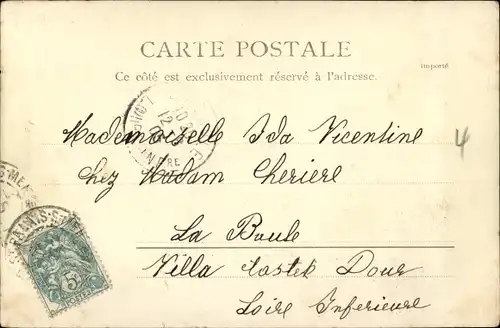 CARTE POSTALE
importé
Ce côté est exclusivement réservé à l'adresse.
Mademoizelle Ida Vicentine
4
Chez Madam Cheriere
La Baule
Villa Castek Dour
Loire Inferieure
5
POSTES